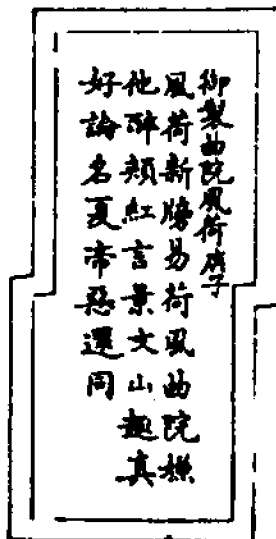 御製曲院風荷牓子
風荷新牓易荷風曲院裸
他醉頰紅言景文山趣真
好論名夏帝惡還同